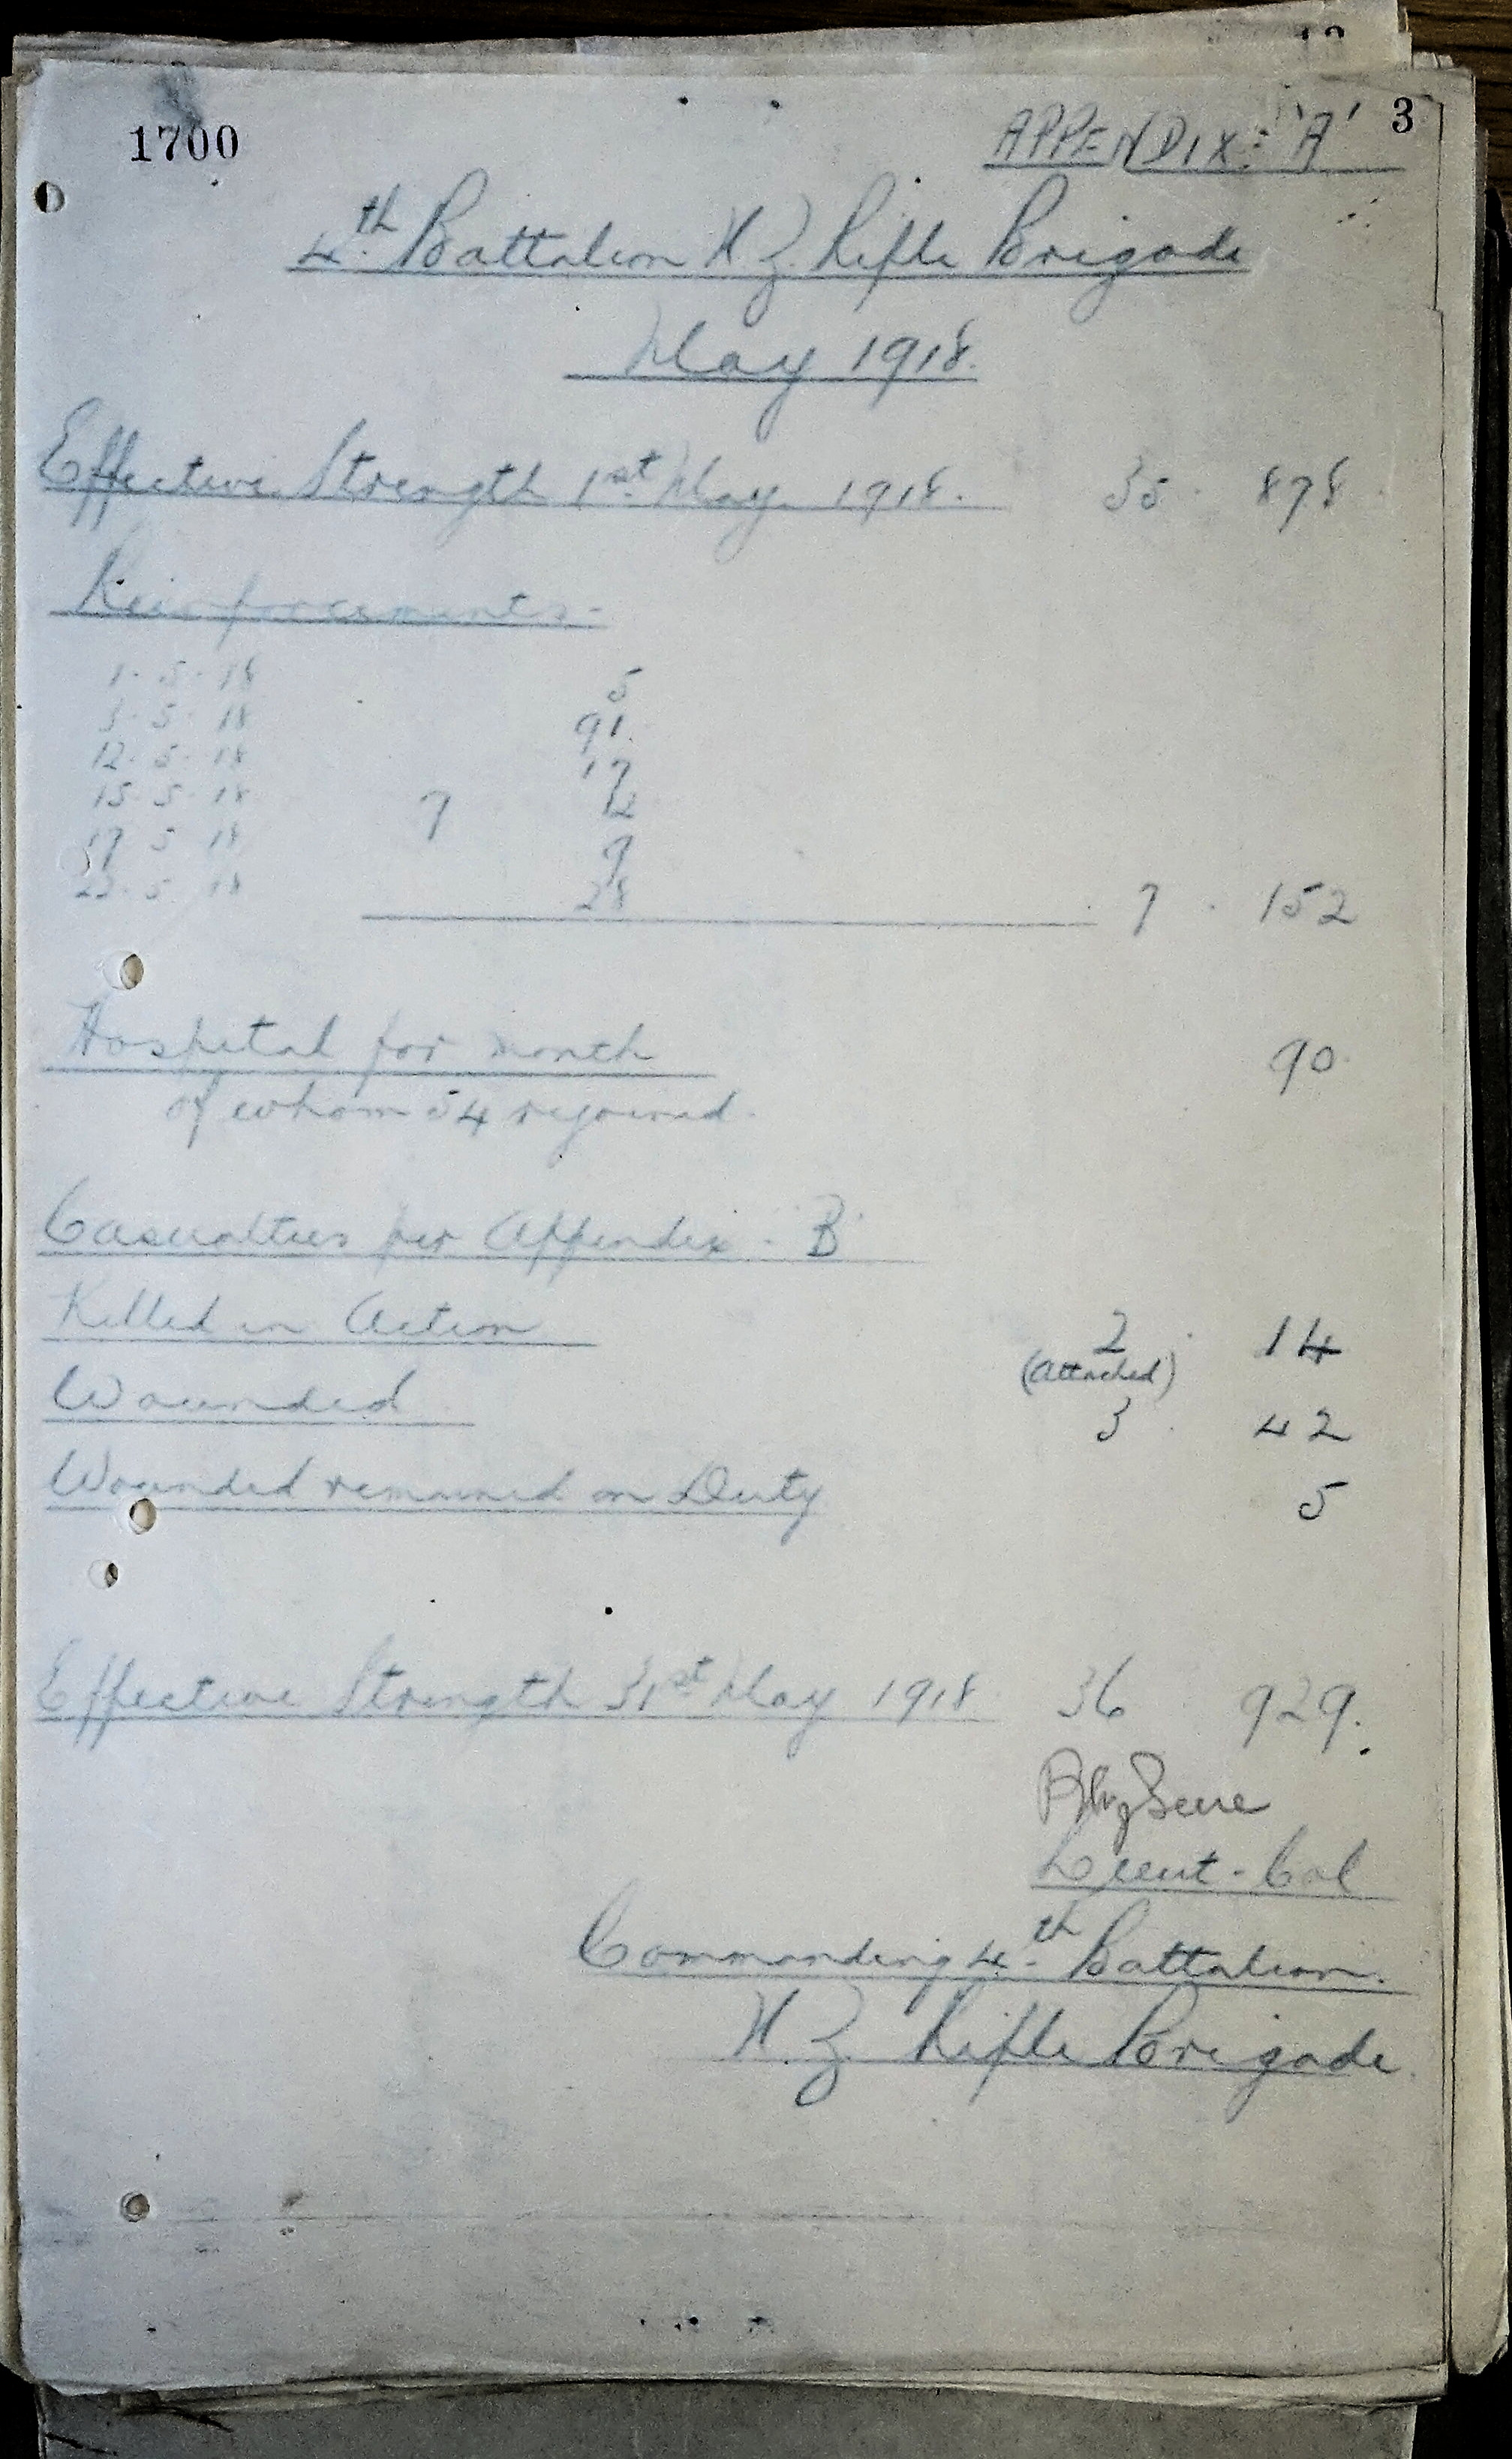 1700
APPENDIX. 'A' 3
4th Battalion N.Z. Rifle Brigade
May 1918.
Effective Strength 1st May 1918. 35 . 878
Reinforcements -
1 . 5 . 18 5
3 . 5 . 18 91
12 . 5 . 18 17
15 . 5 . 18 7 4
17 5 18 7
5 . 18 28 7 . 152
Hospital for month 90
of whom 54 rejoined.
Casualties per Appendix - 'B'
Killed in Action 2 . 14
(attached)
Wounded 3 . 42
Wounded remained on Duty 5
Effective Strength 31st May 1918 36 929.
Lieut - Col
Commanding 4th Battalion.
N.Z. Rifle Brigade.